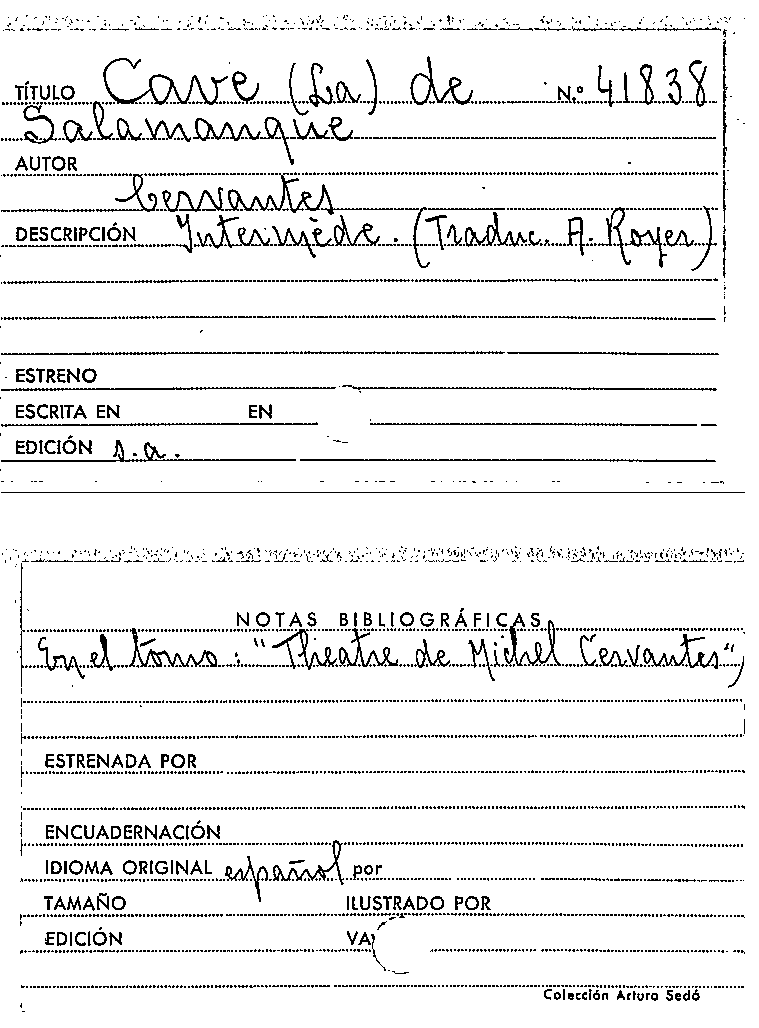 TÍTULO Cave (La) de N.º 41838
Salamanque
AUTOR
Cervantes
DESCRIPCIÓN Intermède. (Traduc. A. Royer)
ESTRENO
ESCRITA EN EN
EDICIÓN s.a.
NOTAS BIBLIOGRÁFICAS
En el tomo: "Theatre de Michel Cervantes",
ESTRENADA POR
ENCUADERNACIÓN
IDIOMA ORIGINAL español por
TAMAÑO ILUSTRADO POR
EDICIÓN
Colección Arturo Sedó